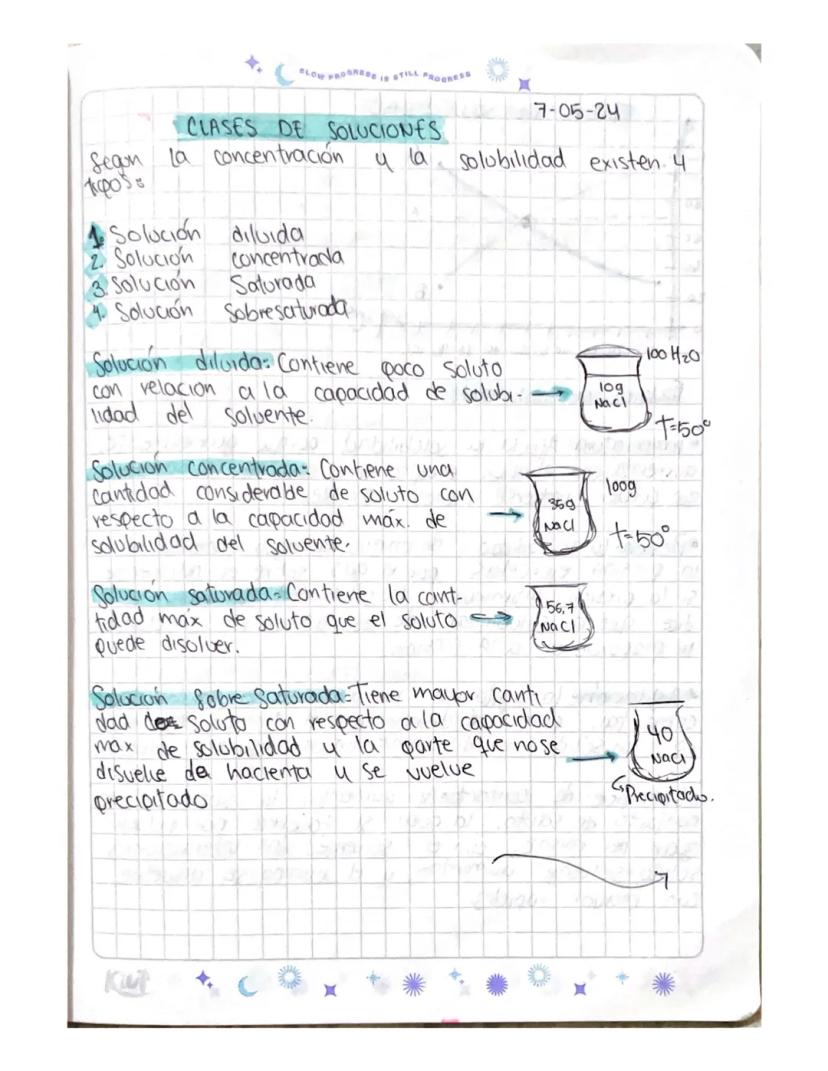 SLOW PROGRESS IS STILL PROGRESS
7-05-24
CLASES DE SOLUCIONES
Segun la concentración y la solubilidad existen 4
tipos:
1. Solución diluida
2. Solución concentrada
3. Solución Saturada
4. Solución Sobresaturada
Solución diluida: Contiene poco soluto
con relacion a la capacidad de solubi-
lidad del solvente.
100 H2O
10g
NaCl
t=50°
Solución concentrada: Contiene una
cantidad considerable de soluto con
respecto a la capacidad máx. de
solubilidad del solvente.
100g
35g
NaCl
t=50°
Solución saturada: Contiene la cant-
tidad máx de soluto que el soluto
puede disolver.
56,7
NaCl
Solución Sobre Saturada: Tiene mayor canti
dad de soluto con respecto a la capacidad
max de solubilidad y la parte que no se
disuelve da hacienta y se vuelve
precipitado
40
NaCl
Precipitado.